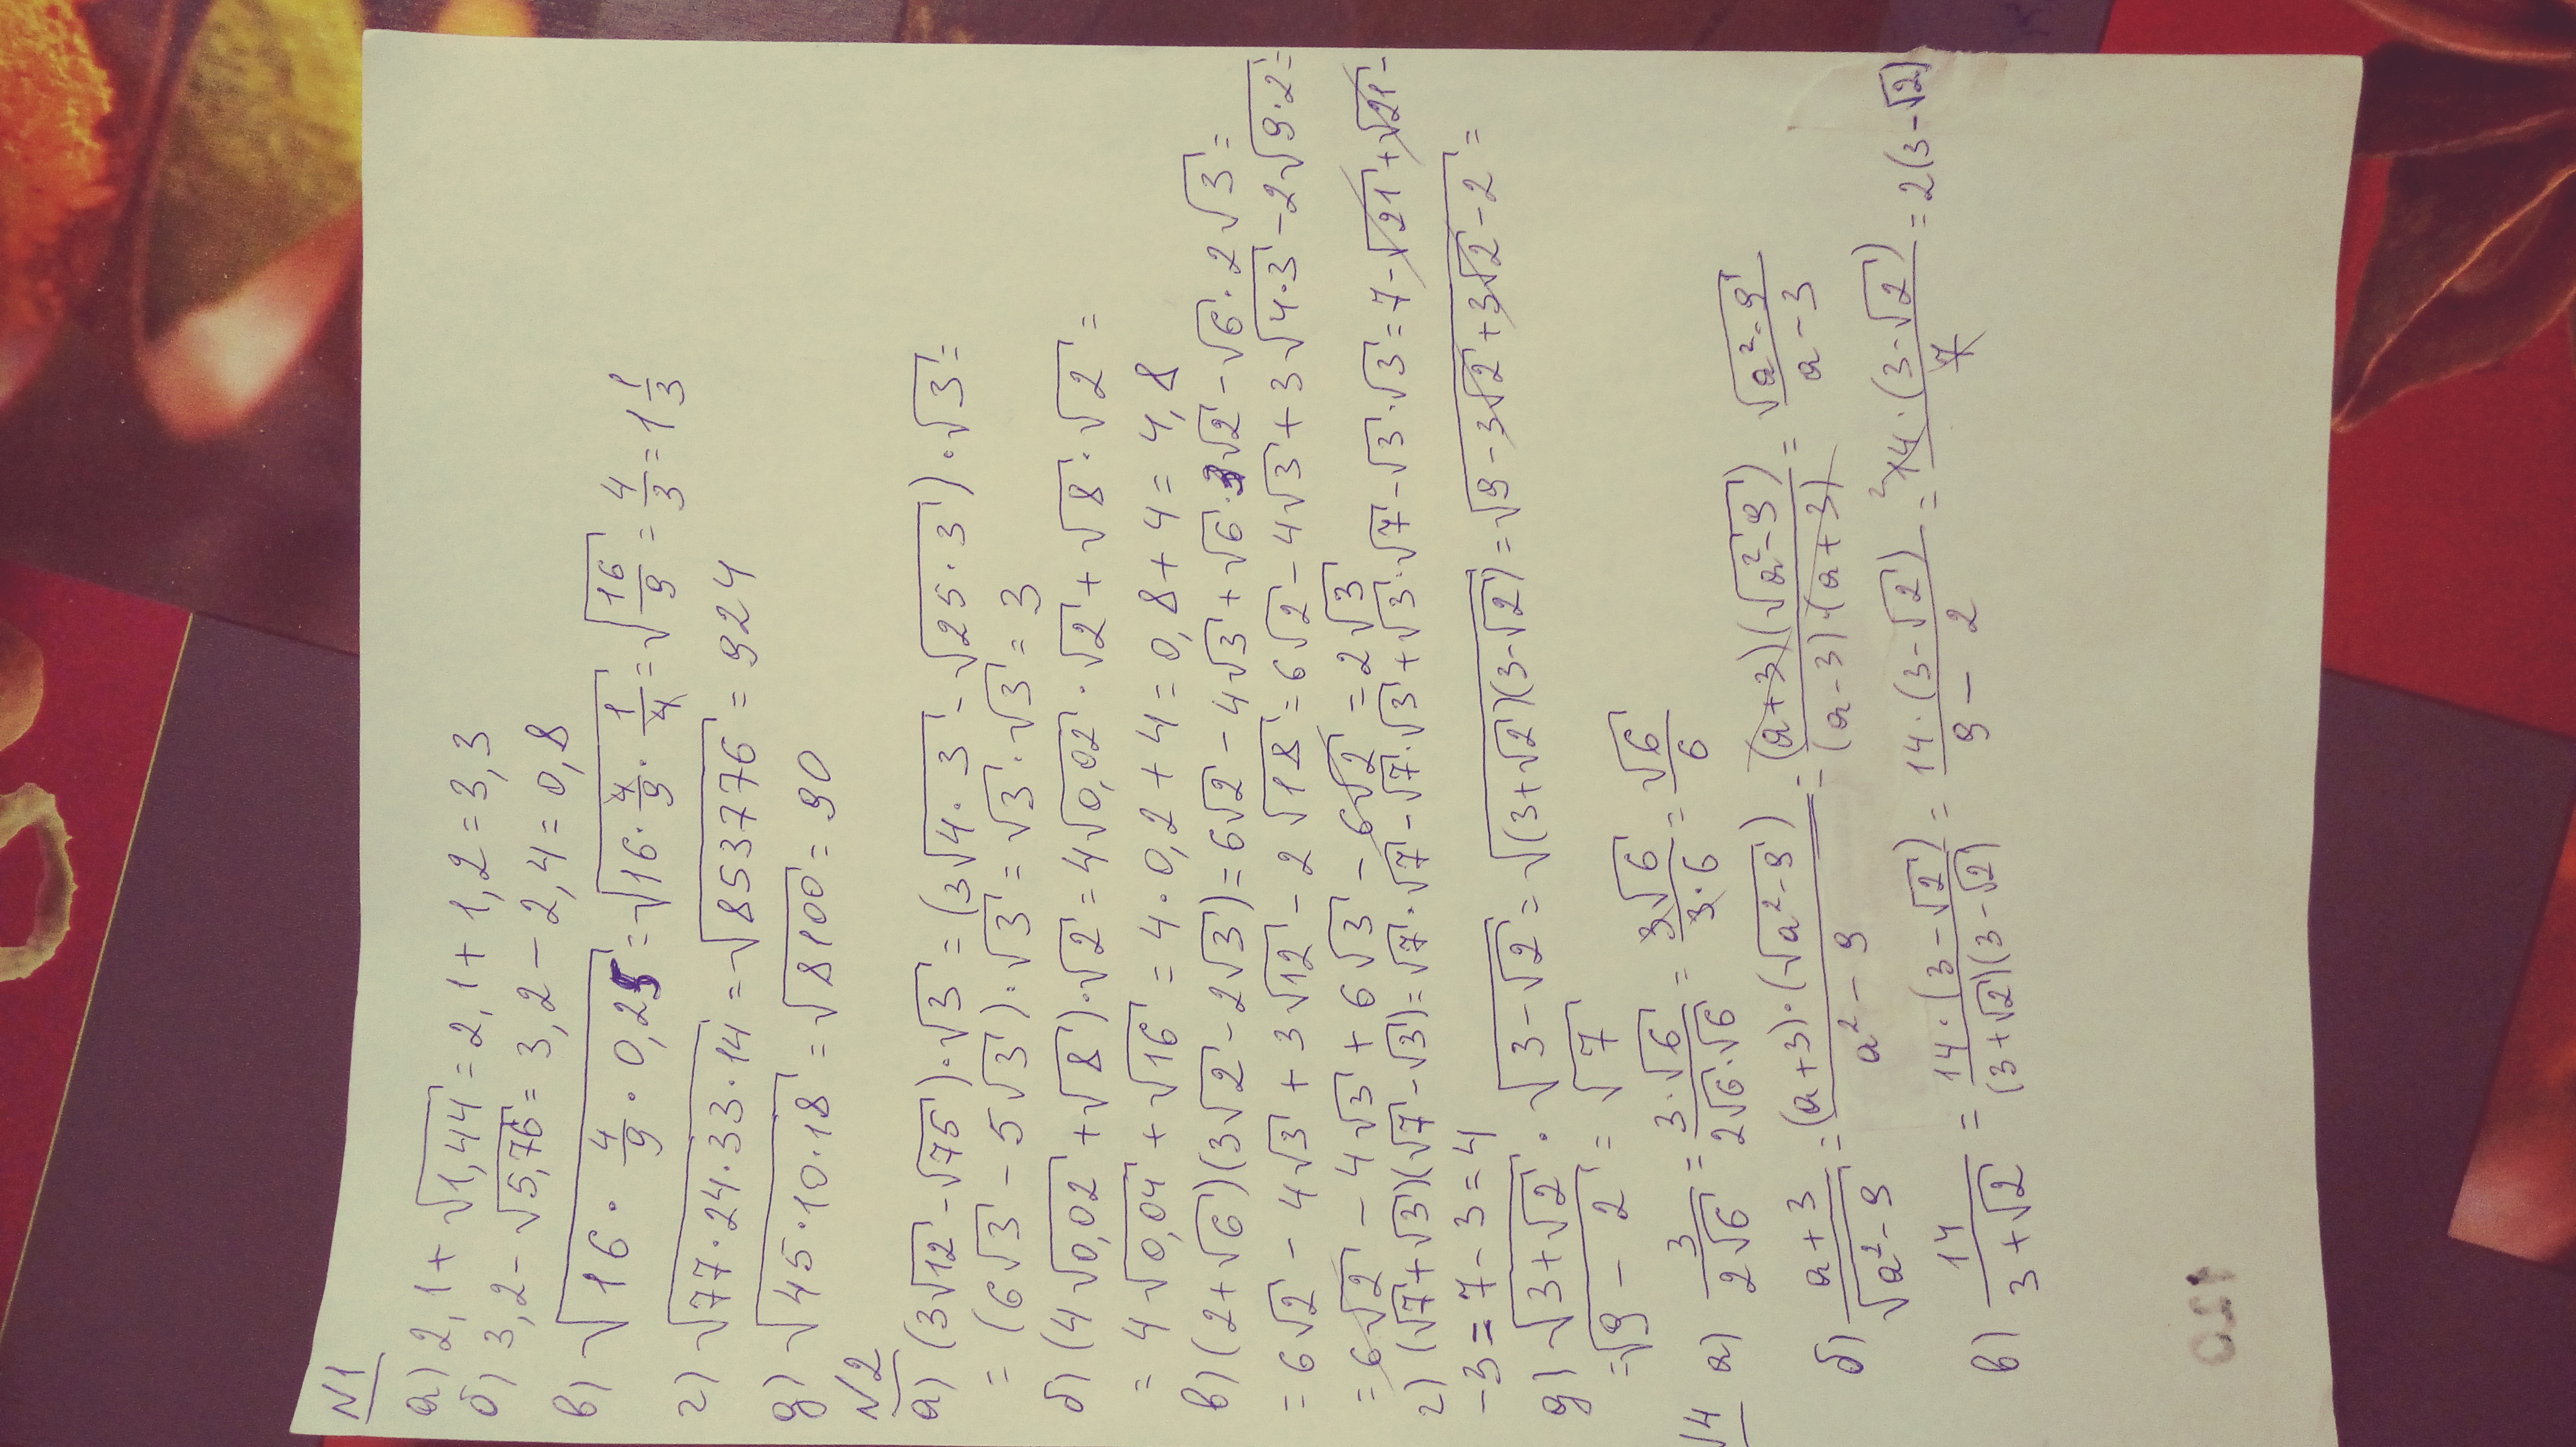 N1
а) 2,1 + √1,44 = 2,1 + 1,2 = 3,3
б) 3,2 - √5,76 = 3,2 - 2,4 = 0,8
в) √(16 · 4/9 · 0,25) = √(16 · 4/9 · 1/4) = √(16/9) = 4/3 = 1 1/3
г) √(77·24·33·14) = √853776 = 924
д) √(45·10·18) = √8100 = 90
N2
а) (3√12 - √75)·√3 = (3√(4·3) - √(25·3))·√3 =
= (6√3 - 5√3)·√3 = √3·√3 = 3
б) (4√0,02 + √8)·√2 = 4√0,02 · √2 + √8 · √2 =
= 4√0,04 + √16 = 4·0,2 + 4 = 0,8 + 4 = 4,8
в) (2+√6)(3√2 - 2√3) = 6√2 - 4√3 + √6·3√2 - √6·2√3 =
= 6√2 - 4√3 + 3√12 - 2√18 = 6√2 - 4√3 + 3√(4·3) - 2√(9·2) =
= 6√2 - 4√3 + 6√3 - 6√2 = 2√3
г) (√7+√3)(√7-√3) = √7·√7 - √7·√3 + √3·√7 - √3·√3 = 7 - √21 + √21 -
- 3 = 7 - 3 = 4
д) √(3+√2) · √(3-√2) = √((3+√2)(3-√2)) = √(9 - 3√2 + 3√2 - 2) =
= √(9 - 2) = √7
√4 а) 3/(2√6) = (3·√6)/(2√6·√6) = (3√6)/(3·6) = √6/6
б) (a+3)/√(a²-9) = ((a+3)·(√(a²-9)))/(a²-9) = ((a+3)(√(a²-9)))/((a-3)·(a+3)) = √(a²-9)/(a-3)
в) 14/(3+√2) = (14·(3-√2))/((3+√2)(3-√2)) = (14·(3-√2))/(9-2) = (²14·(3-√2))/7 = 2(3-√2)